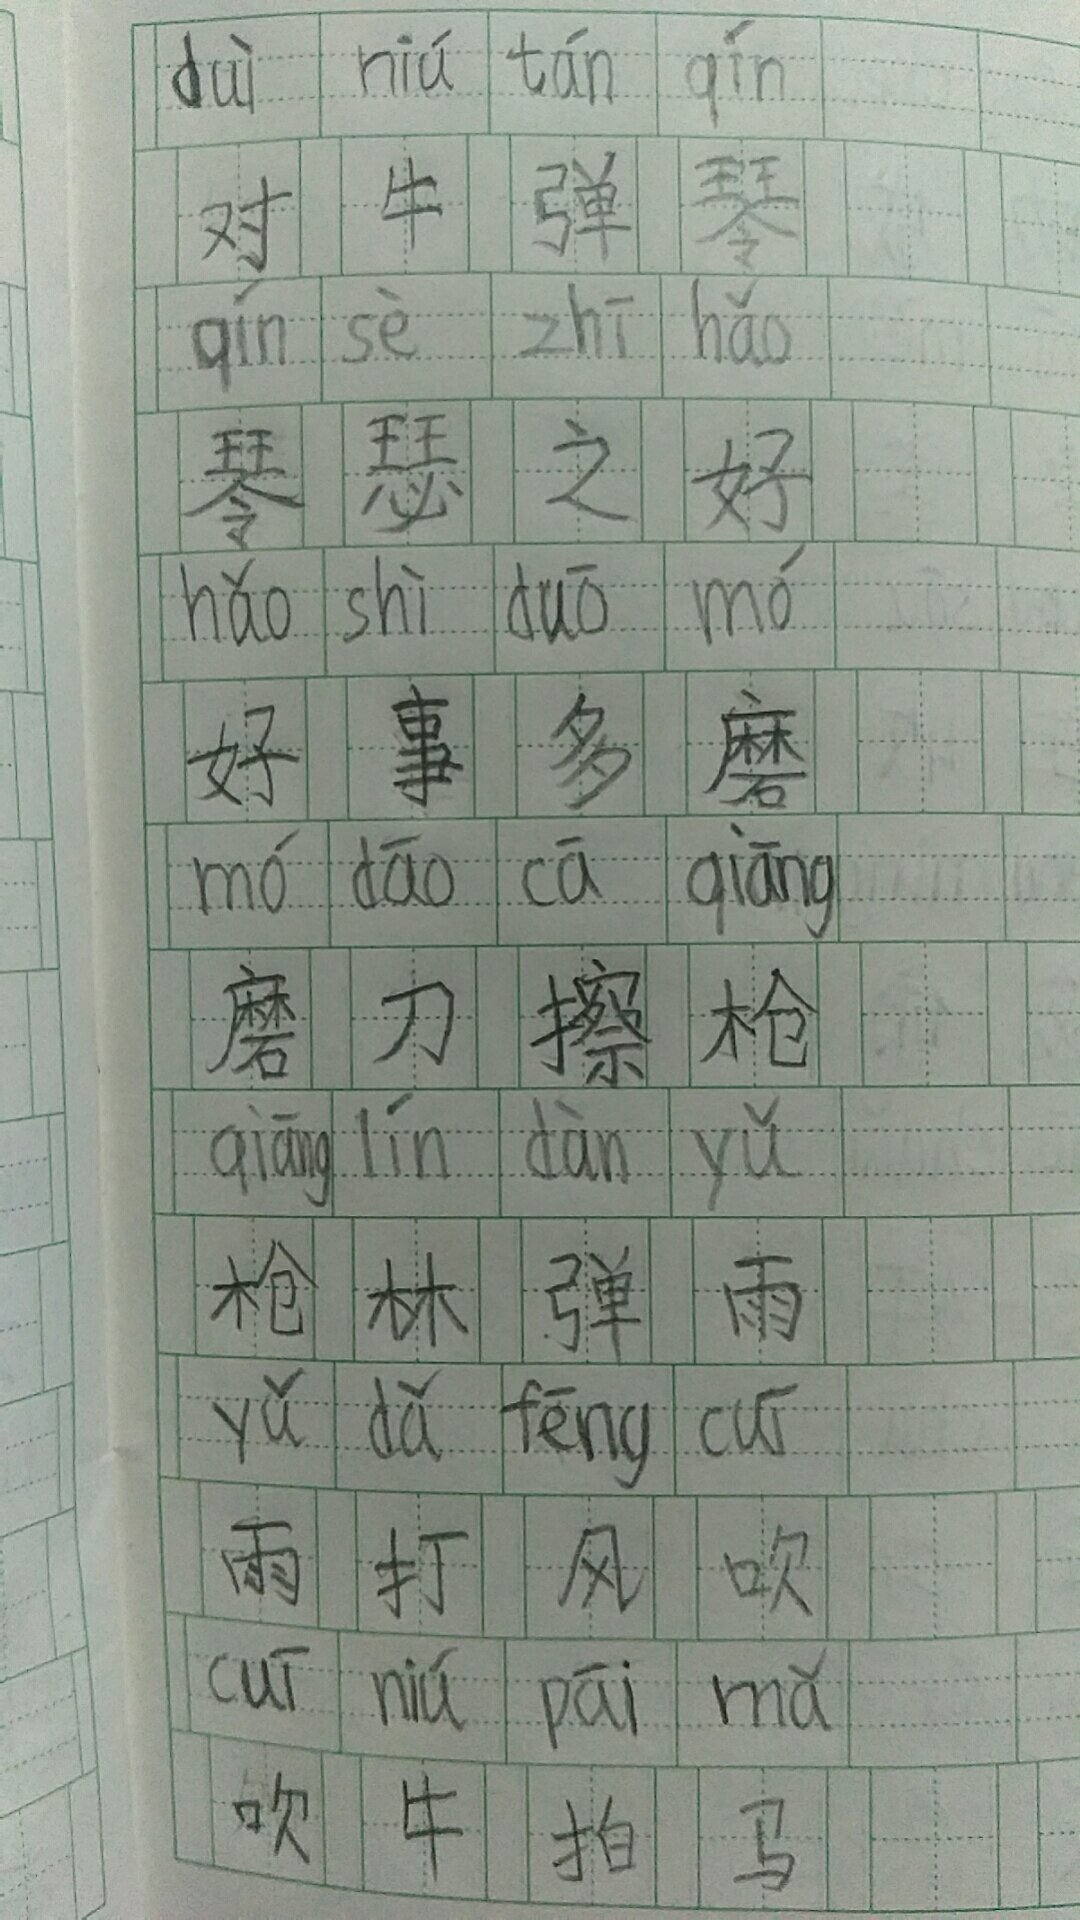 duì niú tán qín
对牛弹琴
qín sè zhī hǎo
琴瑟之好
hǎo shì duō mó
好事多磨
mó dāo cā qiāng
磨刀擦枪
qiāng lín dàn yǔ
枪林弹雨
yǔ dǎ fēng cuī
雨打风吹
cuī niú pāi mǎ
吹牛拍马